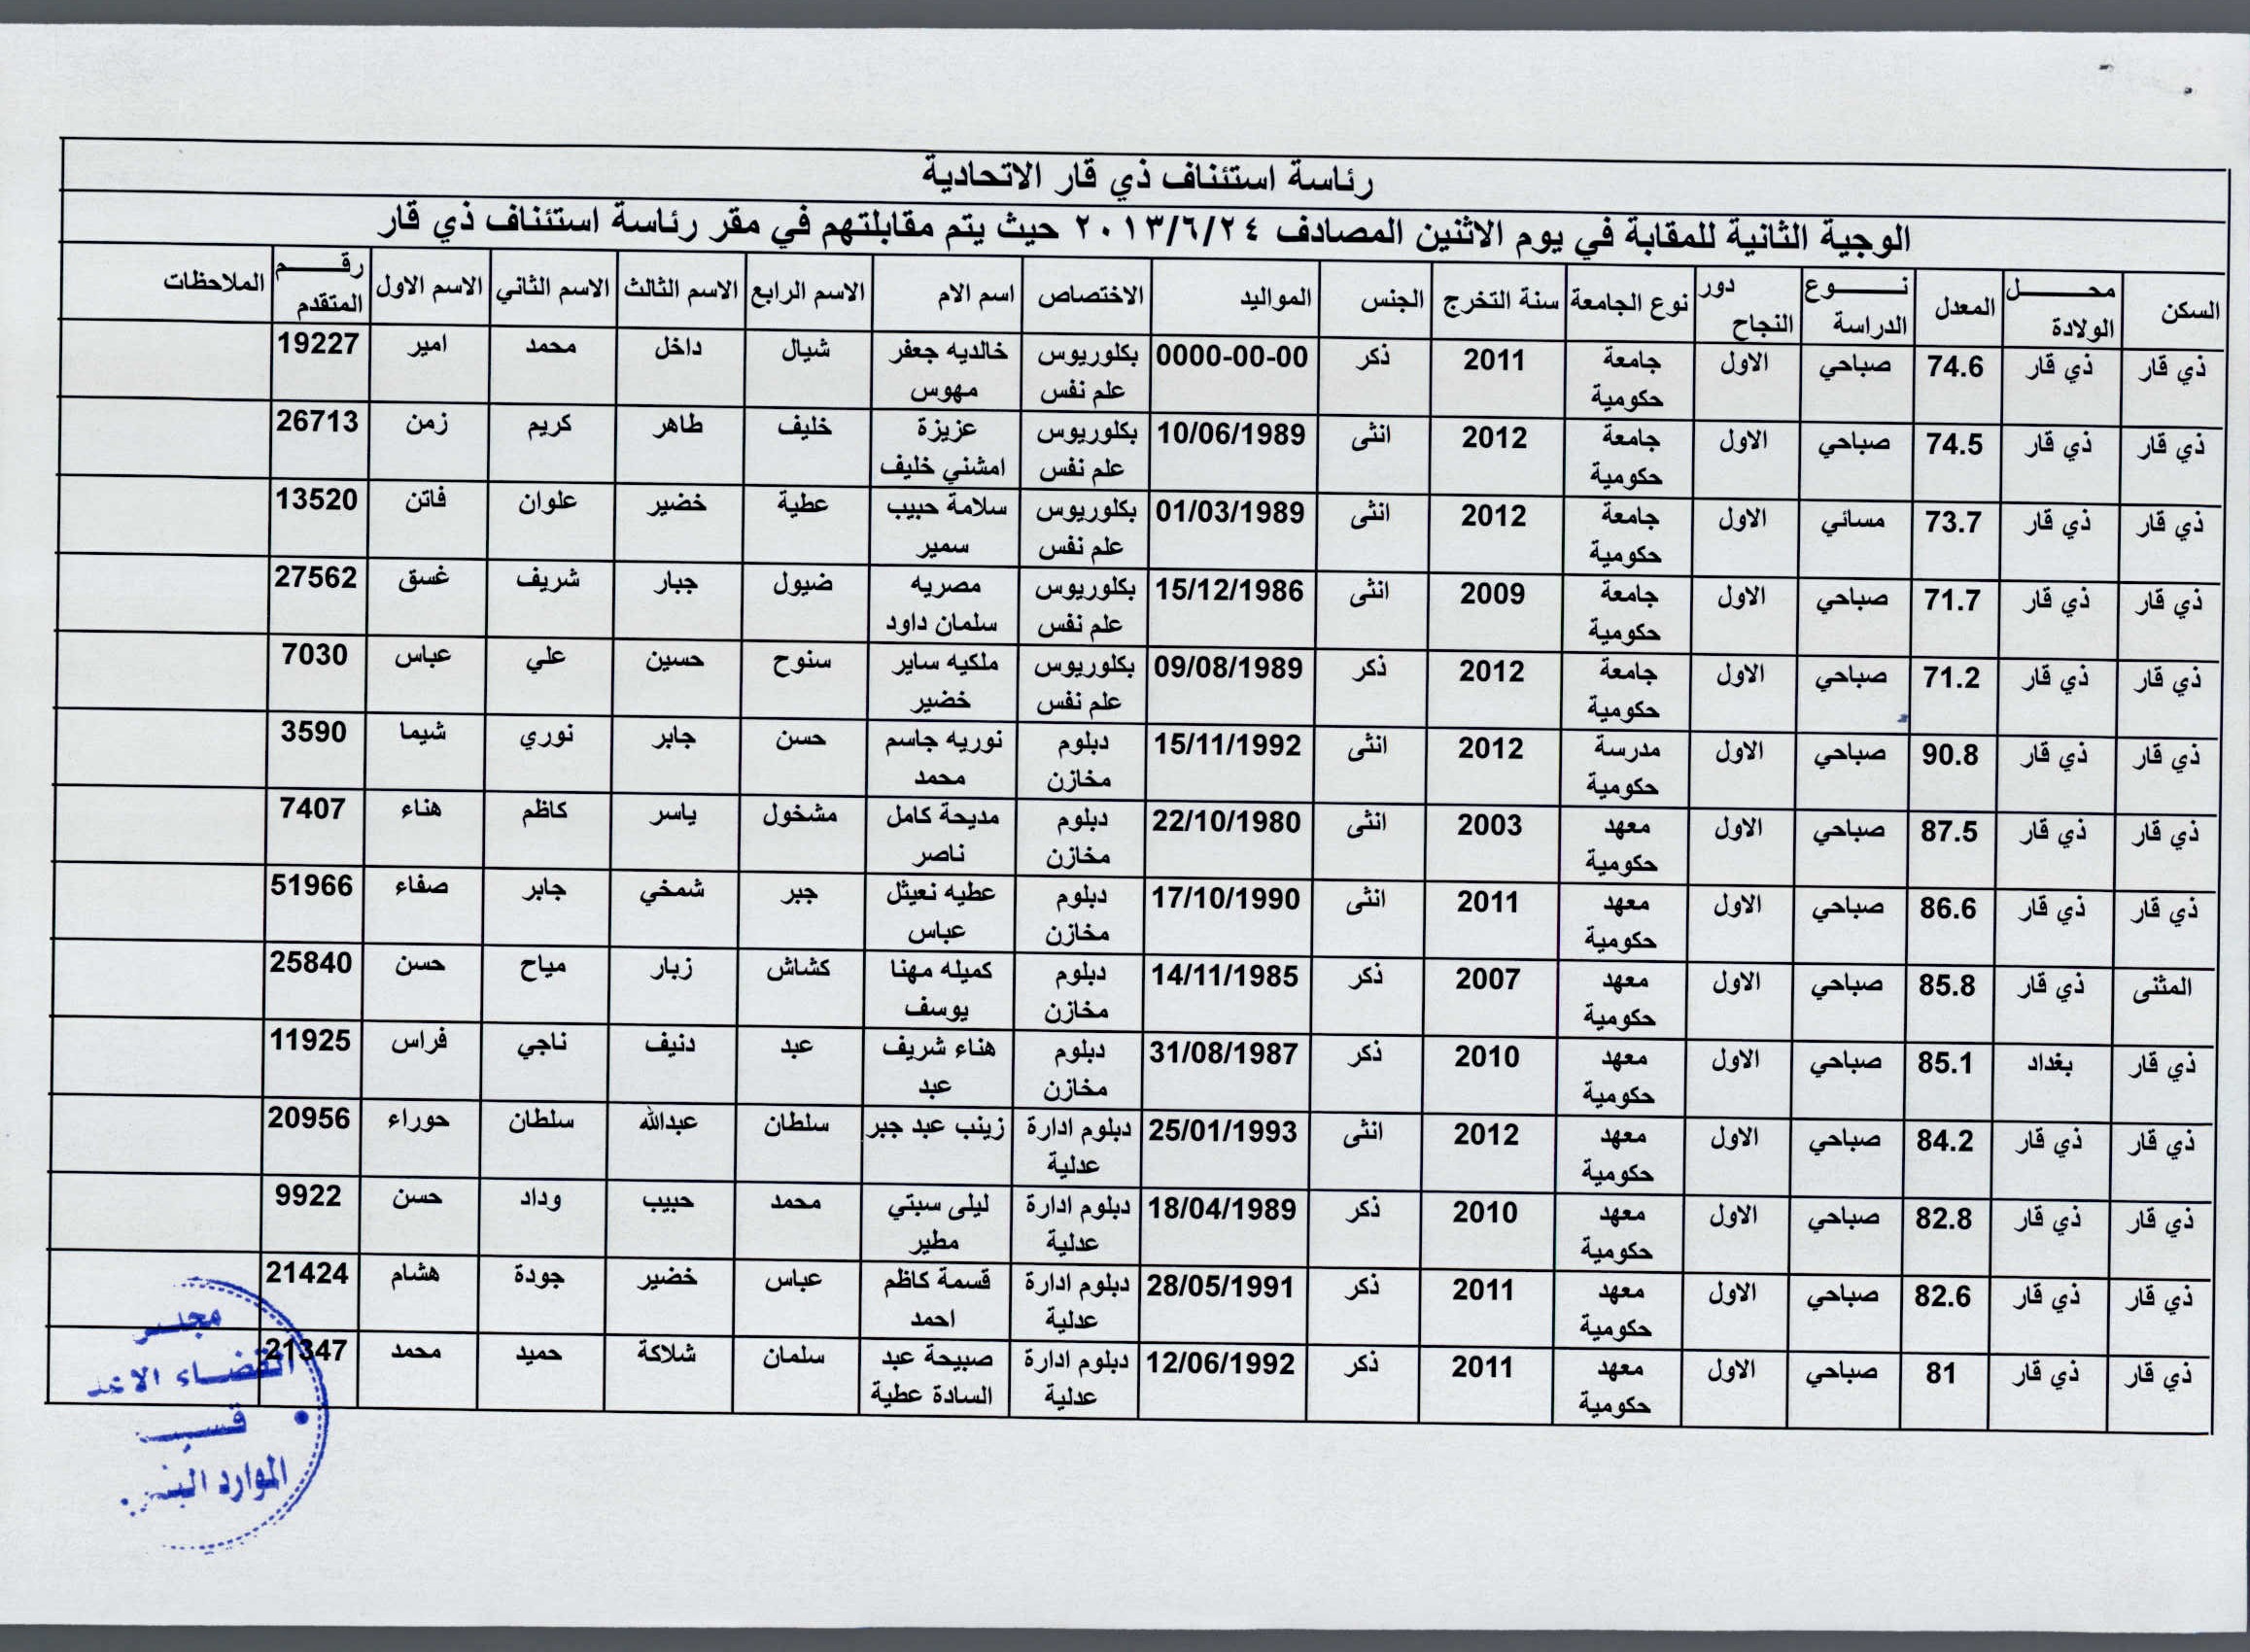 رئاسة استئناف ذي قار الاتحادية
الوجبة الثانية للمقابة في يوم الاثنين المصادف ٢٠١٣/٦/٢٤ حيث يتم مقابلتهم في مقر رئاسة استئناف ذي قار
السكن محل الولادة المعدل نوع الدراسة دور النجاح نوع الجامعة سنة التخرج الجنس المواليد الاختصاص اسم الام الاسم الرابع الاسم الثالث الاسم الثاني الاسم الاول رقم المتقدم الملاحظات
ذي قار ذي قار 74.6 صباحي الاول جامعة حكومية 2011 ذكر 0000-00-00 بكلوريوس علم نفس خالديه جعفر مهوس شيال داخل محمد امير 19227
ذي قار ذي قار 74.5 صباحي الاول جامعة حكومية 2012 انثى 10/06/1989 بكلوريوس علم نفس عزيزة امشني خليف خليف طاهر كريم زمن 26713
ذي قار ذي قار 73.7 مسائي الاول جامعة حكومية 2012 انثى 01/03/1989 بكلوريوس علم نفس سلامة حبيب سمير عطية خضير علوان فاتن 13520
ذي قار ذي قار 71.7 صباحي الاول جامعة حكومية 2009 انثى 15/12/1986 بكلوريوس علم نفس مصريه سلمان داود ضيول جبار شريف غسق 27562
ذي قار ذي قار 71.2 صباحي الاول جامعة حكومية 2012 ذكر 09/08/1989 بكلوريوس علم نفس ملكيه ساير خضير سنوح حسين علي عباس 7030
ذي قار ذي قار 90.8 صباحي الاول مدرسة حكومية 2012 انثى 15/11/1992 دبلوم مخازن نوريه جاسم محمد حسن جابر نوري شيما 3590
ذي قار ذي قار 87.5 صباحي الاول معهد حكومية 2003 انثى 22/10/1980 دبلوم مخازن مديحة كامل ناصر مشخول ياسر كاظم هناء 7407
ذي قار ذي قار 86.6 صباحي الاول معهد حكومية 2011 انثى 17/10/1990 دبلوم مخازن عطيه نعيثل عباس جبر شمخي جابر صفاء 51966
المثنى ذي قار 85.8 صباحي الاول معهد حكومية 2007 ذكر 14/11/1985 دبلوم مخازن كميله مهنا يوسف كشاش زبار مياح حسن 25840
ذي قار بغداد 85.1 صباحي الاول معهد حكومية 2010 ذكر 31/08/1987 دبلوم مخازن هناء شريف عبد عبد دنيف ناجي فراس 11925
ذي قار ذي قار 84.2 صباحي الاول معهد حكومية 2012 انثى 25/01/1993 دبلوم ادارة عدلية زينب عبد جبر سلطان عبدالله سلطان حوراء 20956
ذي قار ذي قار 82.8 صباحي الاول معهد حكومية 2010 ذكر 18/04/1989 دبلوم ادارة عدلية ليلى سبتي مطير محمد حبيب وداد حسن 9922
ذي قار ذي قار 82.6 صباحي الاول معهد حكومية 2011 ذكر 28/05/1991 دبلوم ادارة عدلية قسمة كاظم احمد عباس خضير جودة هشام 21424
ذي قار ذي قار 81 صباحي الاول معهد حكومية 2011 ذكر 12/06/1992 دبلوم ادارة عدلية صبيحة عبد السادة عطية سلمان شلاكة حميد محمد 21347
القضاء
الموارد